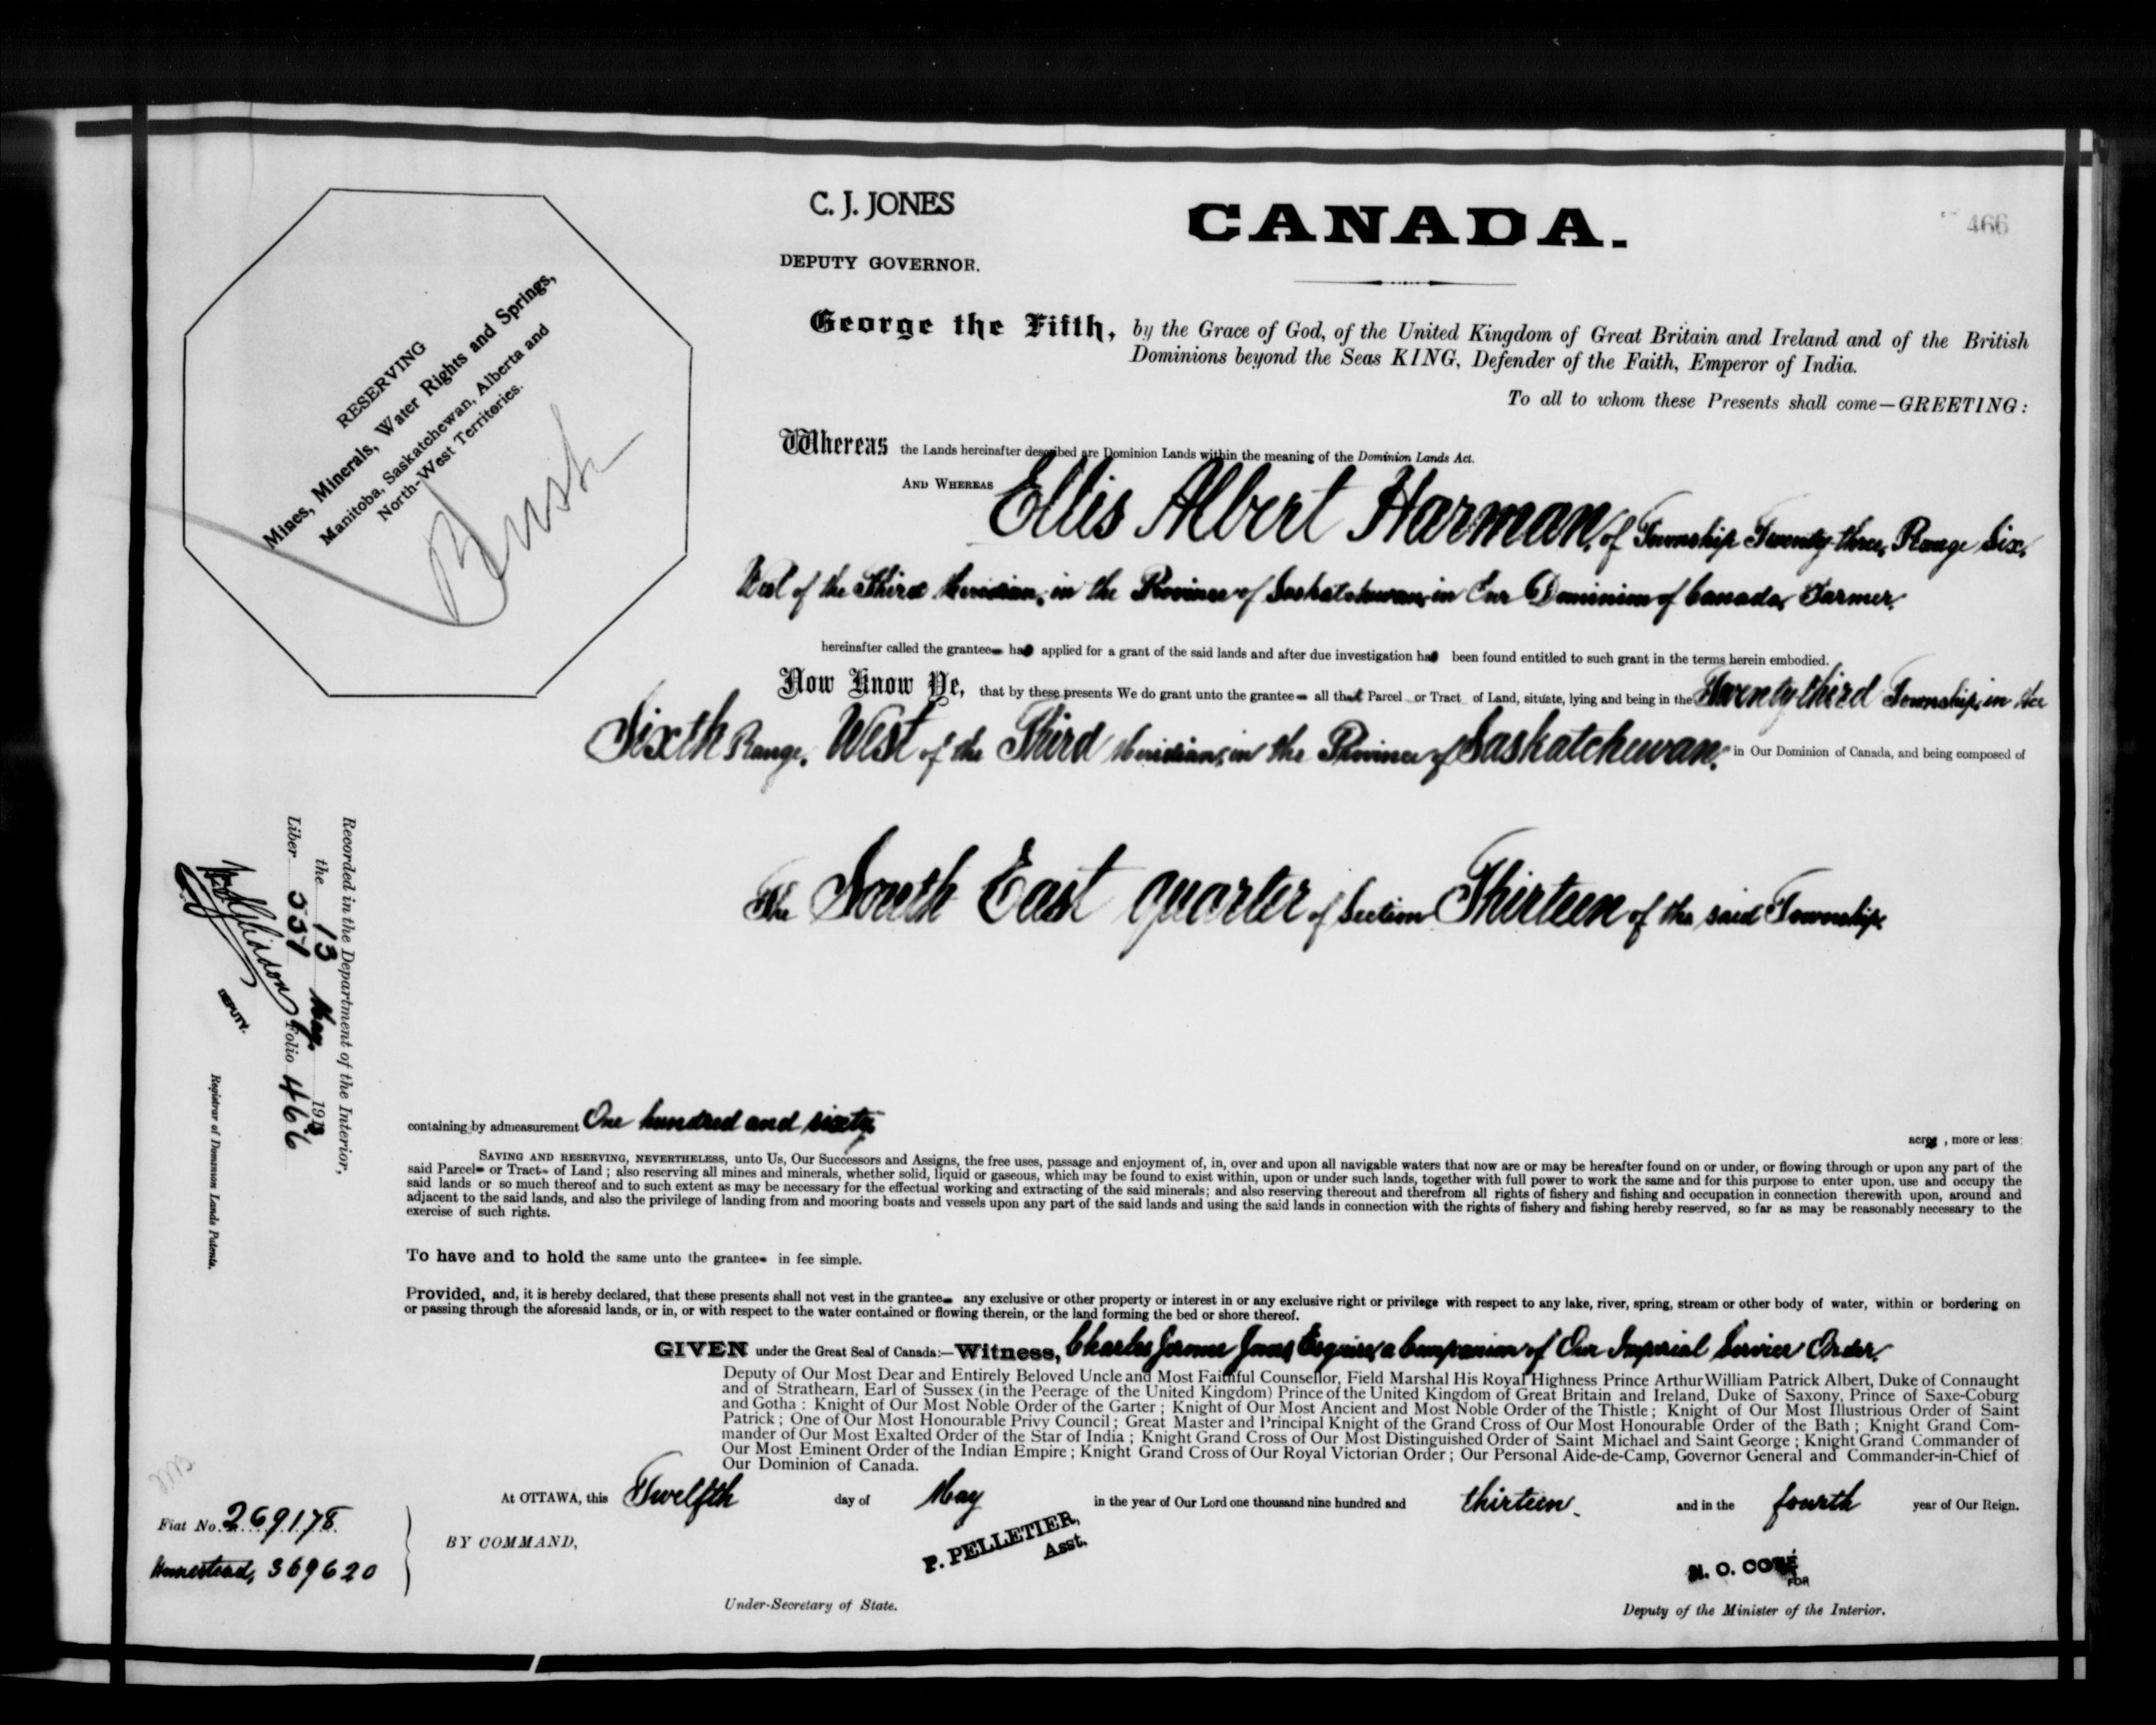 C. J. JONES
DEPUTY GOVERNOR.
CANADA.
466
RESERVING
Mines, Minerals, Water Rights and Springs,
Manitoba, Saskatchewan, Alberta and
North-West Territories.
George the Fifth, by the Grace of God, of the United Kingdom of Great Britain and Ireland and of the British
Dominions beyond the Seas KING, Defender of the Faith, Emperor of India.
To all to whom these Presents shall come—GREETING:
Whereas the Lands hereinafter described are Dominion Lands within the meaning of the Dominion Lands Act.
AND WHEREAS Ellis Albert Harman, of Township Twenty-three, Range Six,
West of the Third Meridian, in the Province of Saskatchewan, in Our Dominion of Canada, Farmer,
hereinafter called the grantee has applied for a grant of the said lands and after due investigation has been found entitled to such grant in the terms herein embodied.
Now Know Ye, that by these presents We do grant unto the grantee all that Parcel or Tract of Land, situate, lying and being in the Twenty-third Township, in the
Sixth Range, West of the Third Meridian, in the Province of Saskatchewan, in Our Dominion of Canada, and being composed of
The South East quarter of Section Thirteen of the said Township.
Recorded in the Department of the Interior,
the 13 May 1913
Liber 337 Folio 466
DEPUTY.
Registrar of Dominion Lands Patents.
containing by admeasurement One hundred and sixty acres, more or less;
SAVING AND RESERVING, NEVERTHELESS, unto Us, Our Successors and Assigns, the free uses, passage and enjoyment of, in, over and upon all navigable waters that now are or may be hereafter found on or under, or flowing through or upon any part of the
said Parcel or Tract of Land; also reserving all mines and minerals, whether solid, liquid or gaseous, which may be found to exist within, upon or under such lands, together with full power to work the same and for this purpose to enter upon, use and occupy the
said lands or so much thereof and to such extent as may be necessary for the effectual working and extracting of the said minerals; and also reserving thereout and therefrom all rights of fishery and fishing and occupation in connection therewith upon, around and
adjacent to the said lands, and also the privilege of landing from and mooring boats and vessels upon any part of the said lands and using the said lands in connection with the rights of fishery and fishing hereby reserved, so far as may be reasonably necessary to the
exercise of such rights.
To have and to hold the same unto the grantee in fee simple.
Provided, and, it is hereby declared, that these presents shall not vest in the grantee any exclusive or other property or interest in or any exclusive right or privilege with respect to any lake, river, spring, stream or other body of water, within or bordering on
or passing through the aforesaid lands, or in, or with respect to the water contained or flowing therein, or the land forming the bed or shore thereof.
GIVEN under the Great Seal of Canada:—Witness, Charles Jerome Jones, Esquire, a Companion of Our Imperial Service Order,
Deputy of Our Most Dear and Entirely Beloved Uncle and Most Faithful Counsellor, Field Marshal His Royal Highness Prince Arthur William Patrick Albert, Duke of Connaught
and of Strathearn, Earl of Sussex (in the Peerage of the United Kingdom) Prince of the United Kingdom of Great Britain and Ireland, Duke of Saxony, Prince of Saxe-Coburg
and Gotha: Knight of Our Most Noble Order of the Garter; Knight of Our Most Ancient and Most Noble Order of the Thistle; Knight of Our Most Illustrious Order of Saint
Patrick; One of Our Most Honourable Privy Council; Great Master and Principal Knight of the Grand Cross of Our Most Honourable Order of the Bath; Knight Grand Com-
mander of Our Most Exalted Order of the Star of India; Knight Grand Cross of Our Most Distinguished Order of Saint Michael and Saint George; Knight Grand Commander of
Our Most Eminent Order of the Indian Empire; Knight Grand Cross of Our Royal Victorian Order; Our Personal Aide-de-Camp, Governor General and Commander-in-Chief of
Our Dominion of Canada.
At OTTAWA, this Twelfth day of May in the year of Our Lord one thousand nine hundred and thirteen and in the fourth year of Our Reign.
Fiat No. 269178
Homestead, 369620
BY COMMAND,
P. PELLETIER,
Asst.
Under-Secretary of State.
N. O. COTÉ
FOR
Deputy of the Minister of the Interior.